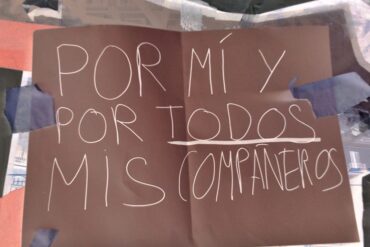 POR MÍ Y
POR TODOS
MIS COMPAÑEROS